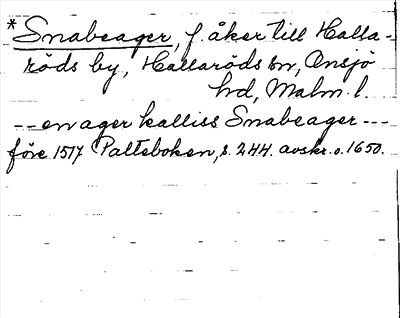 *Snabeager, f. åker till Halla-
röds by, Hallaröds sn, Onsjö
hd, Malm. l.
-- en ager kalliss Snabeager ---
före 1517 Palteboken, s. 244. avskr. o. 1650.